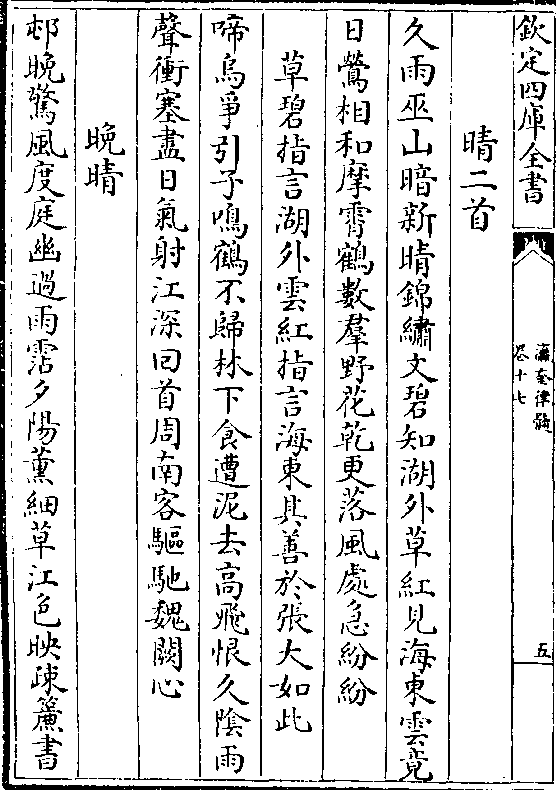 欽定四庫全書
瀛奎律髓
卷十七
五
晴二首
久雨巫山暗新晴錦繡文碧知湖外草紅見海東雲竟
日鶯相和摩霄鶴數羣野花乾更落風處急紛紛
草碧指言湖外雲紅指言海東其善於張大如此
啼烏爭引子鳴鶴不歸林下食遭泥去高飛恨久陰雨
聲衝塞盡日氣射江深回首周南客驅馳魏闕心
晚晴
邨晚驚風度庭幽過雨霑夕陽薰細草江色映疎簾書